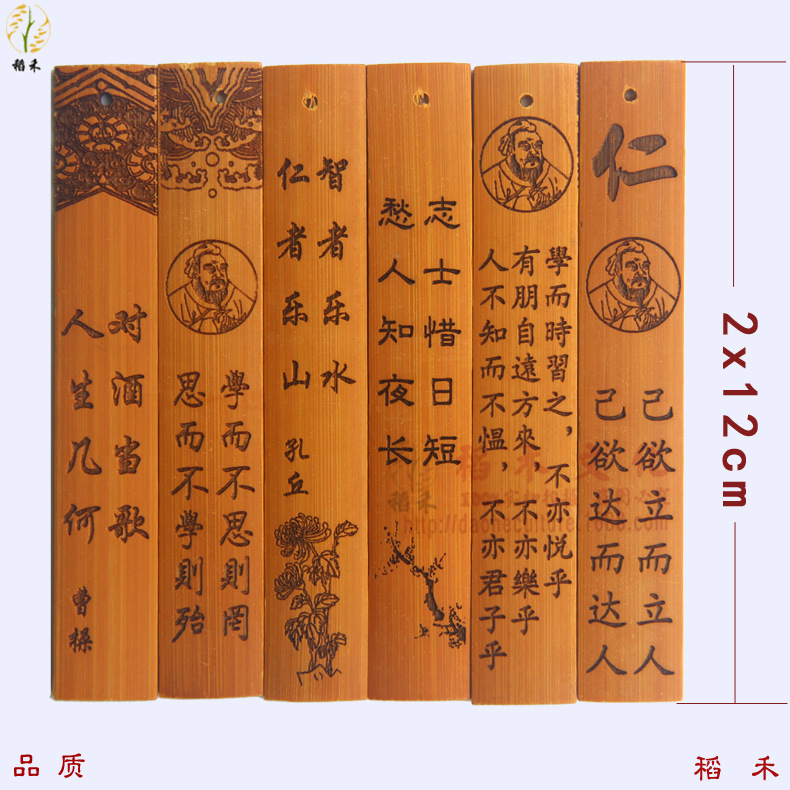 稻禾
对酒当歌
人生几何
曹操
學而不思則罔
思而不學則殆
智者乐水
仁者乐山
孔丘
志士惜日短
愁人知夜长
學而時習之，不亦悦乎
有朋自遠方來，不亦樂乎
人不知而不愠，不亦君子乎
仁
己欲立而立人
己欲达而达人
稻禾
2x12cm
品质
稻禾